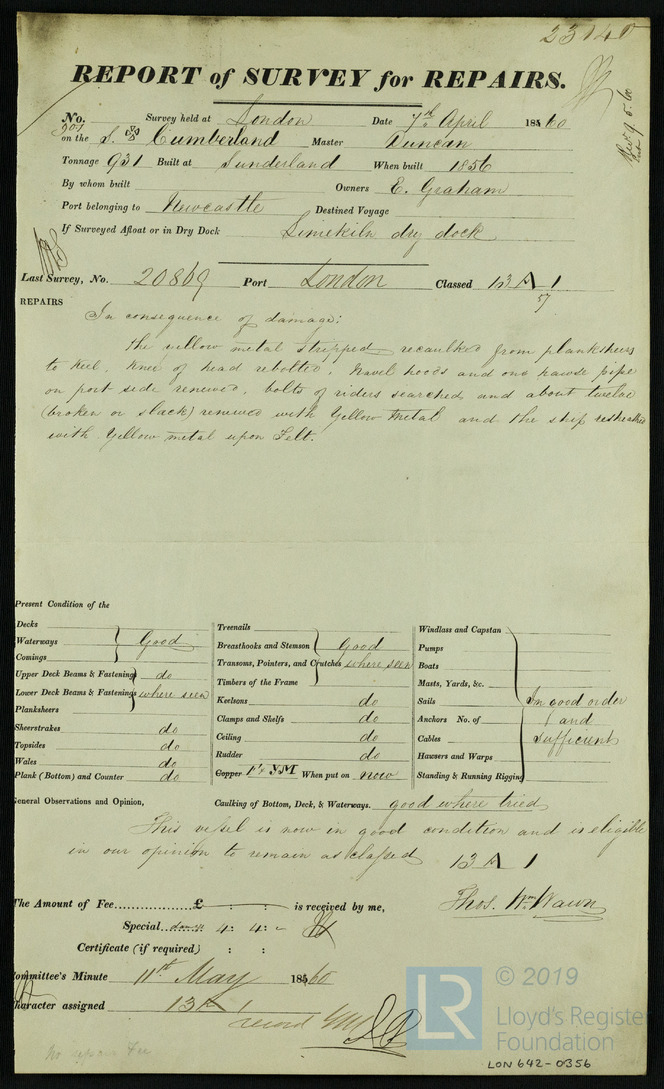 23140
REPORT of SURVEY for REPAIRS.
No. Survey held at London Date 7th April 1860
on the S. Cumberland Master Duncan
Tonnage 931 Built at Sunderland When built 1856
By whom built Owners E. Graham
Port belonging to Newcastle Destined Voyage
If Surveyed Afloat or in Dry Dock Limekiln dry dock
Last Survey, No. 20869 Port London Classed 13 A 1
57
REPAIRS
In consequence of damage;
The yellow metal stripped, recaulked from planksheers
to keel. Knee of head rebolted. Navel hoods and one hawse pipe
on port side renewed. bolts of riders searched and about twelve
(broken or slack) renewed with Yellow Metal and the ship resheathed
with Yellow metal upon Felt.
Present Condition of the
Decks
Waterways Good
Comings
Upper Deck Beams & Fastenings do
Lower Deck Beams & Fastenings where seen
Planksheers
Sheerstrakes do
Topsides do
Wales do
Plank (Bottom) and Counter do
Treenails
Breasthooks and Stemson Good
Transoms, Pointers, and Crutches where seen
Timbers of the Frame
Keelsons do
Clamps and Shelfs do
Ceiling do
Rudder do
Copper YM When put on now
Windlass and Capstan
Pumps
Boats
Masts, Yards, &c.
Sails In good order
Anchors No. of and
Cables Sufficient
Hawsers and Warps
Standing & Running Rigging
General Observations and Opinion, Caulking of Bottom, Deck, & Waterways. good where tried
This vessel is now in good condition and is eligible
in our opinion to remain as classed 13 A 1
The Amount of Fee £ : : is received by me, Thos. Wm Wawn
Special 4 : 4 : -
Certificate (if required) : :
Committee's Minute 11th May 1860
Character assigned 13 A 1
record
No repairs Fee
LR © 2019
Lloyd's Register
Foundation
LON 642-0356